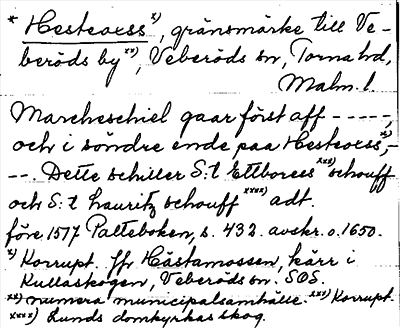 * Hesteoxss x), gränsmärke till Ve-
beröds by xx), Veberöds sn, Torna hd,
Malm. l.
Marcheschiel gaar först aff -----,
och i söndre ende paa Hesteoxss x),-
--. Dette schiller S:t Ellboress xxx) schouff
och S:t Lauritz schouff xxxx) adt.
före 1517 Palteboken, s. 432. avskr. o. 1650.
x) Korrupt. Jfr Hästamossen, kärr i
Kullaskogen, Veberöds sn. SOS.
xx) numera municipalsamhälle. xxx) Korrupt.
xxxx) Lunds domkyrkas skog.